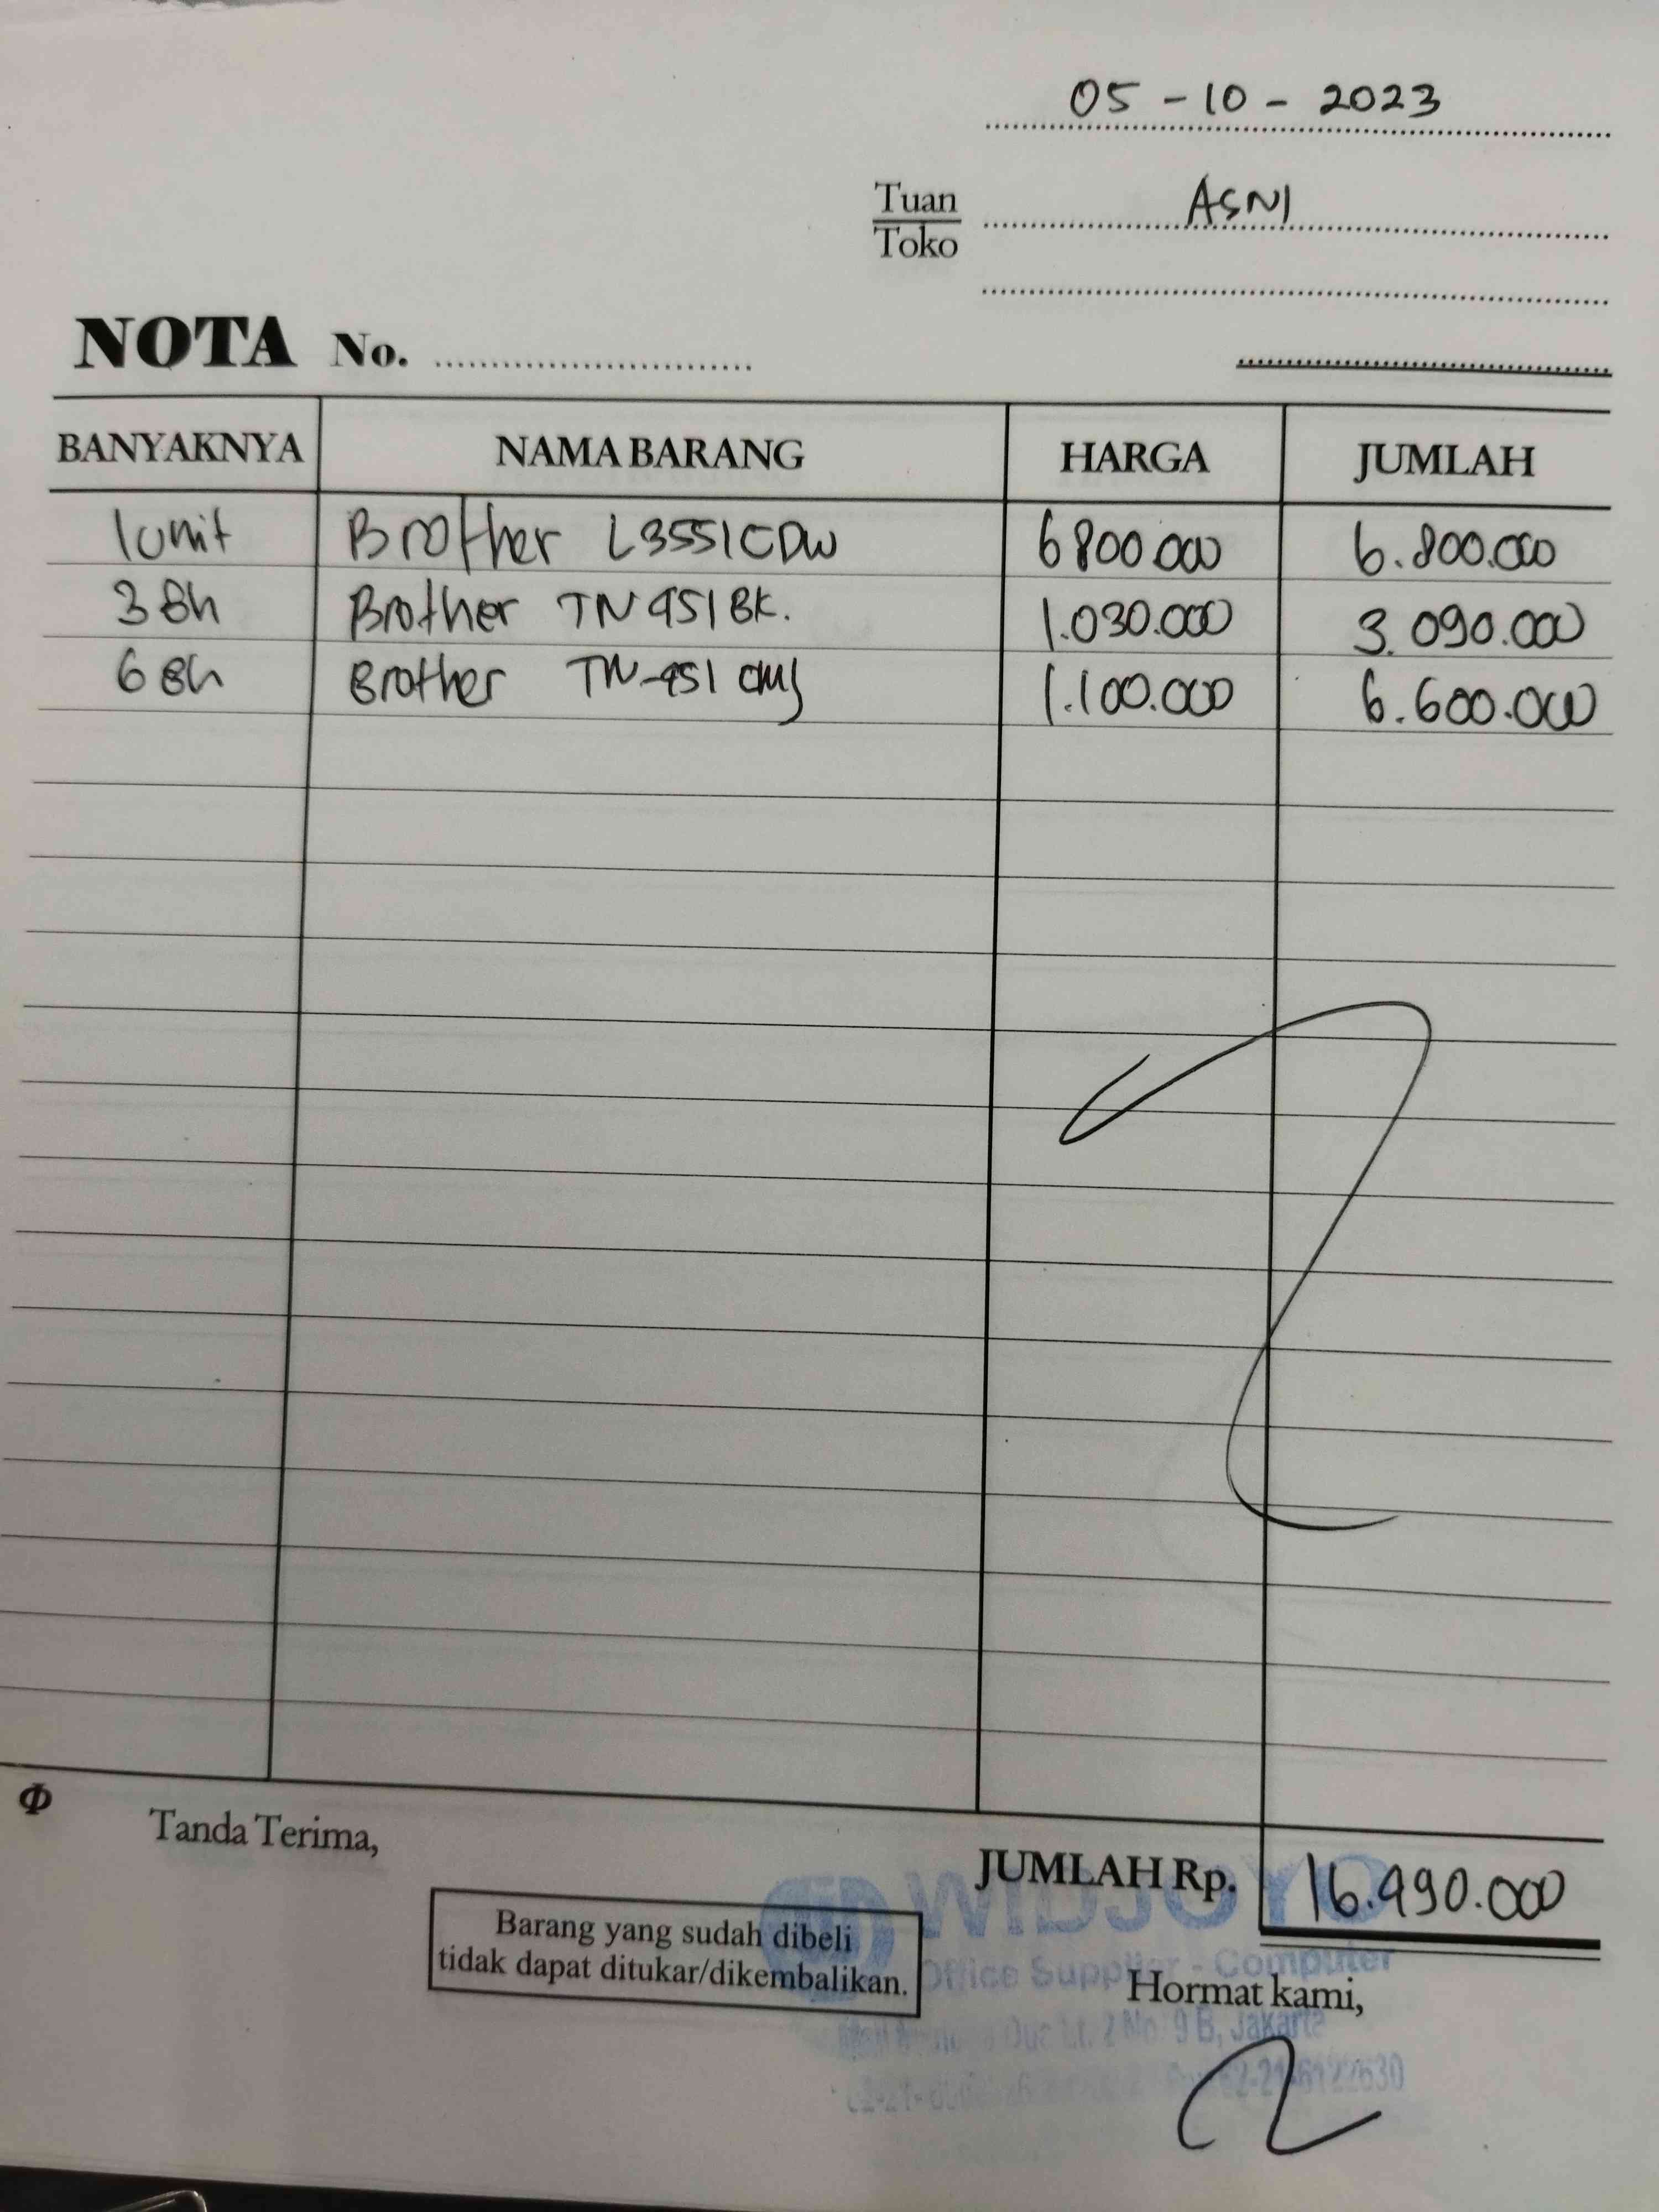 05 - 10 - 2023
Tuan
Toko
ASNI
NOTA No.
BANYAKNYA NAMA BARANG HARGA JUMLAH
1 unit Brother L3551CDW 6800.000 6.800.000
3 Bh Brother TN 451 BK. 1.030.000 3.090.000
6 Bh Brother TN-451 CMY 1.100.000 6.600.000
Φ
Tanda Terima,
JUMLAH Rp. 16.490.000
WIDJOYO
Barang yang sudah dibeli
tidak dapat ditukar/dikembalikan.
Office Supplier - Computer
Hormat kami,
Lt. 2 No. 9 B, Jakarta